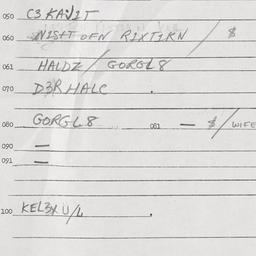 050 C3 KAV2T
060 NIS+T OFN RIXTIKN / $
061 HALDZ / GORGL8
070 D3R HALC .
080 GORGL8 081 — $/WIFE
090 —
091 —
100 KEL3X U/L .